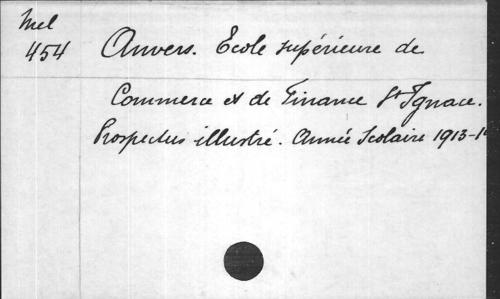 Mel
454
Anvers. Ecole supérieure de
Commerce et de Finance St Ignace.
Prospectus illustré. Année Scolaire 1913-1